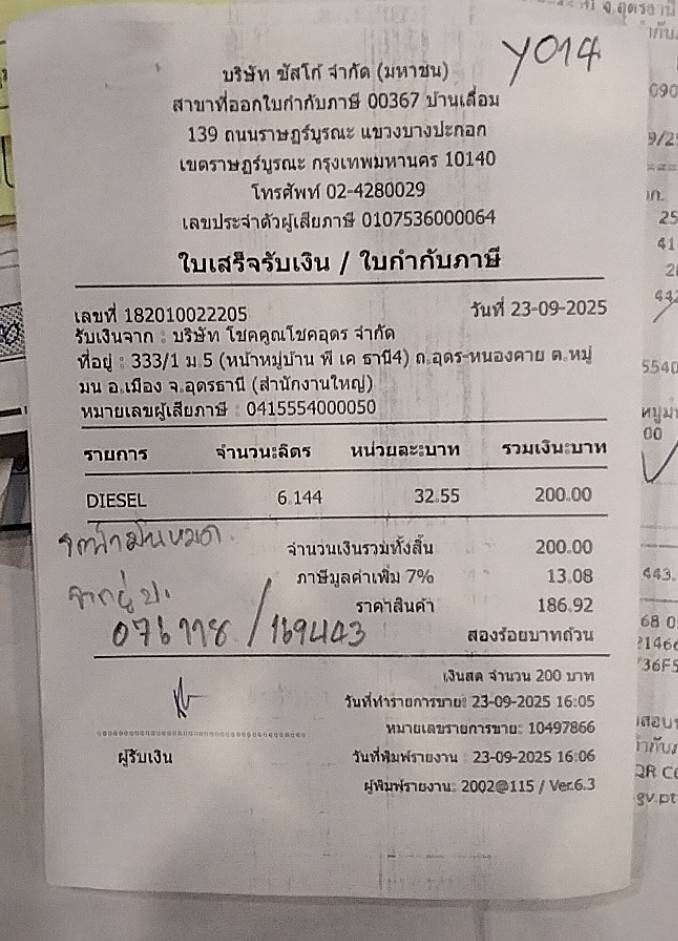 Y014
บริษัท ซัสโก้ จำกัด (มหาชน)
สาขาที่ออกใบกำกับภาษี 00367 บ้านเลื่อม
139 ถนนราษฎร์บูรณะ แขวงบางปะกอก
เขตราษฎร์บูรณะ กรุงเทพมหานคร 10140
โทรศัพท์ 02-4280029
เลขประจำตัวผู้เสียภาษี 0107536000064
ใบเสร็จรับเงิน / ใบกำกับภาษี
เลขที่ 182010022205 วันที่ 23-09-2025
รับเงินจาก : บริษัท โชคคูณโชคอุดร จำกัด
ที่อยู่ : 333/1 ม.5 (หน้าหมู่บ้าน พี เค ธานี4) ถ.อุดร-หนองคาย ต.หมู
มน อ.เมือง จ.อุดรธานี (สำนักงานใหญ่)
หมายเลขผู้เสียภาษี : 0415554000050
รายการ จำนวน:ลิตร หน่วยละ:บาท รวมเงิน:บาท
DIESEL 6.144 32.55 200.00
จำนวนเงินรวมทั้งสิ้น 200.00
ภาษีมูลค่าเพิ่ม 7% 13.08
ราคาสินค้า 186.92
/169443
สองร้อยบาทถ้วน
เงินสด จำนวน 200 บาท
วันที่ทำรายการขาย: 23-09-2025 16:05
หมายเลขรายการขาย: 10497866
ผู้รับเงิน วันที่พิมพ์รายงาน : 23-09-2025 16:06
ผู้พิมพ์รายงาน: 2002@115 / Ver.6.3